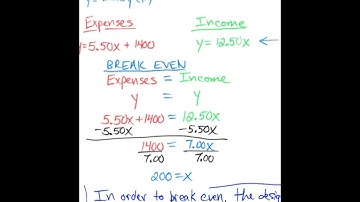 Expenses Income
y=5.50x + 1400 y=12.50x ←
BREAK EVEN
Expenses = Income
y = y
5.50x+1400 = 12.50x
-5.50x -5.50x
1400 = 7.00x
7.00 7.00
200=x
) In order to break even, the desig